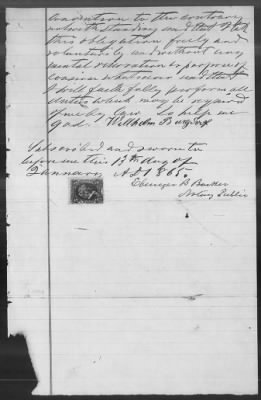 Convention to the contrary
notwithstanding and that I take
this obligation freely and
voluntarily and without any
mental reservation or purpose of
evasion whatsoever and that
I will faithfully perform all
duties which may be required
of me by law. So help me
God. Wilhelm
Subscribed and sworn to
before me this 13th day of
January AD 1865.
Ebenezer B Barker
Notary Public